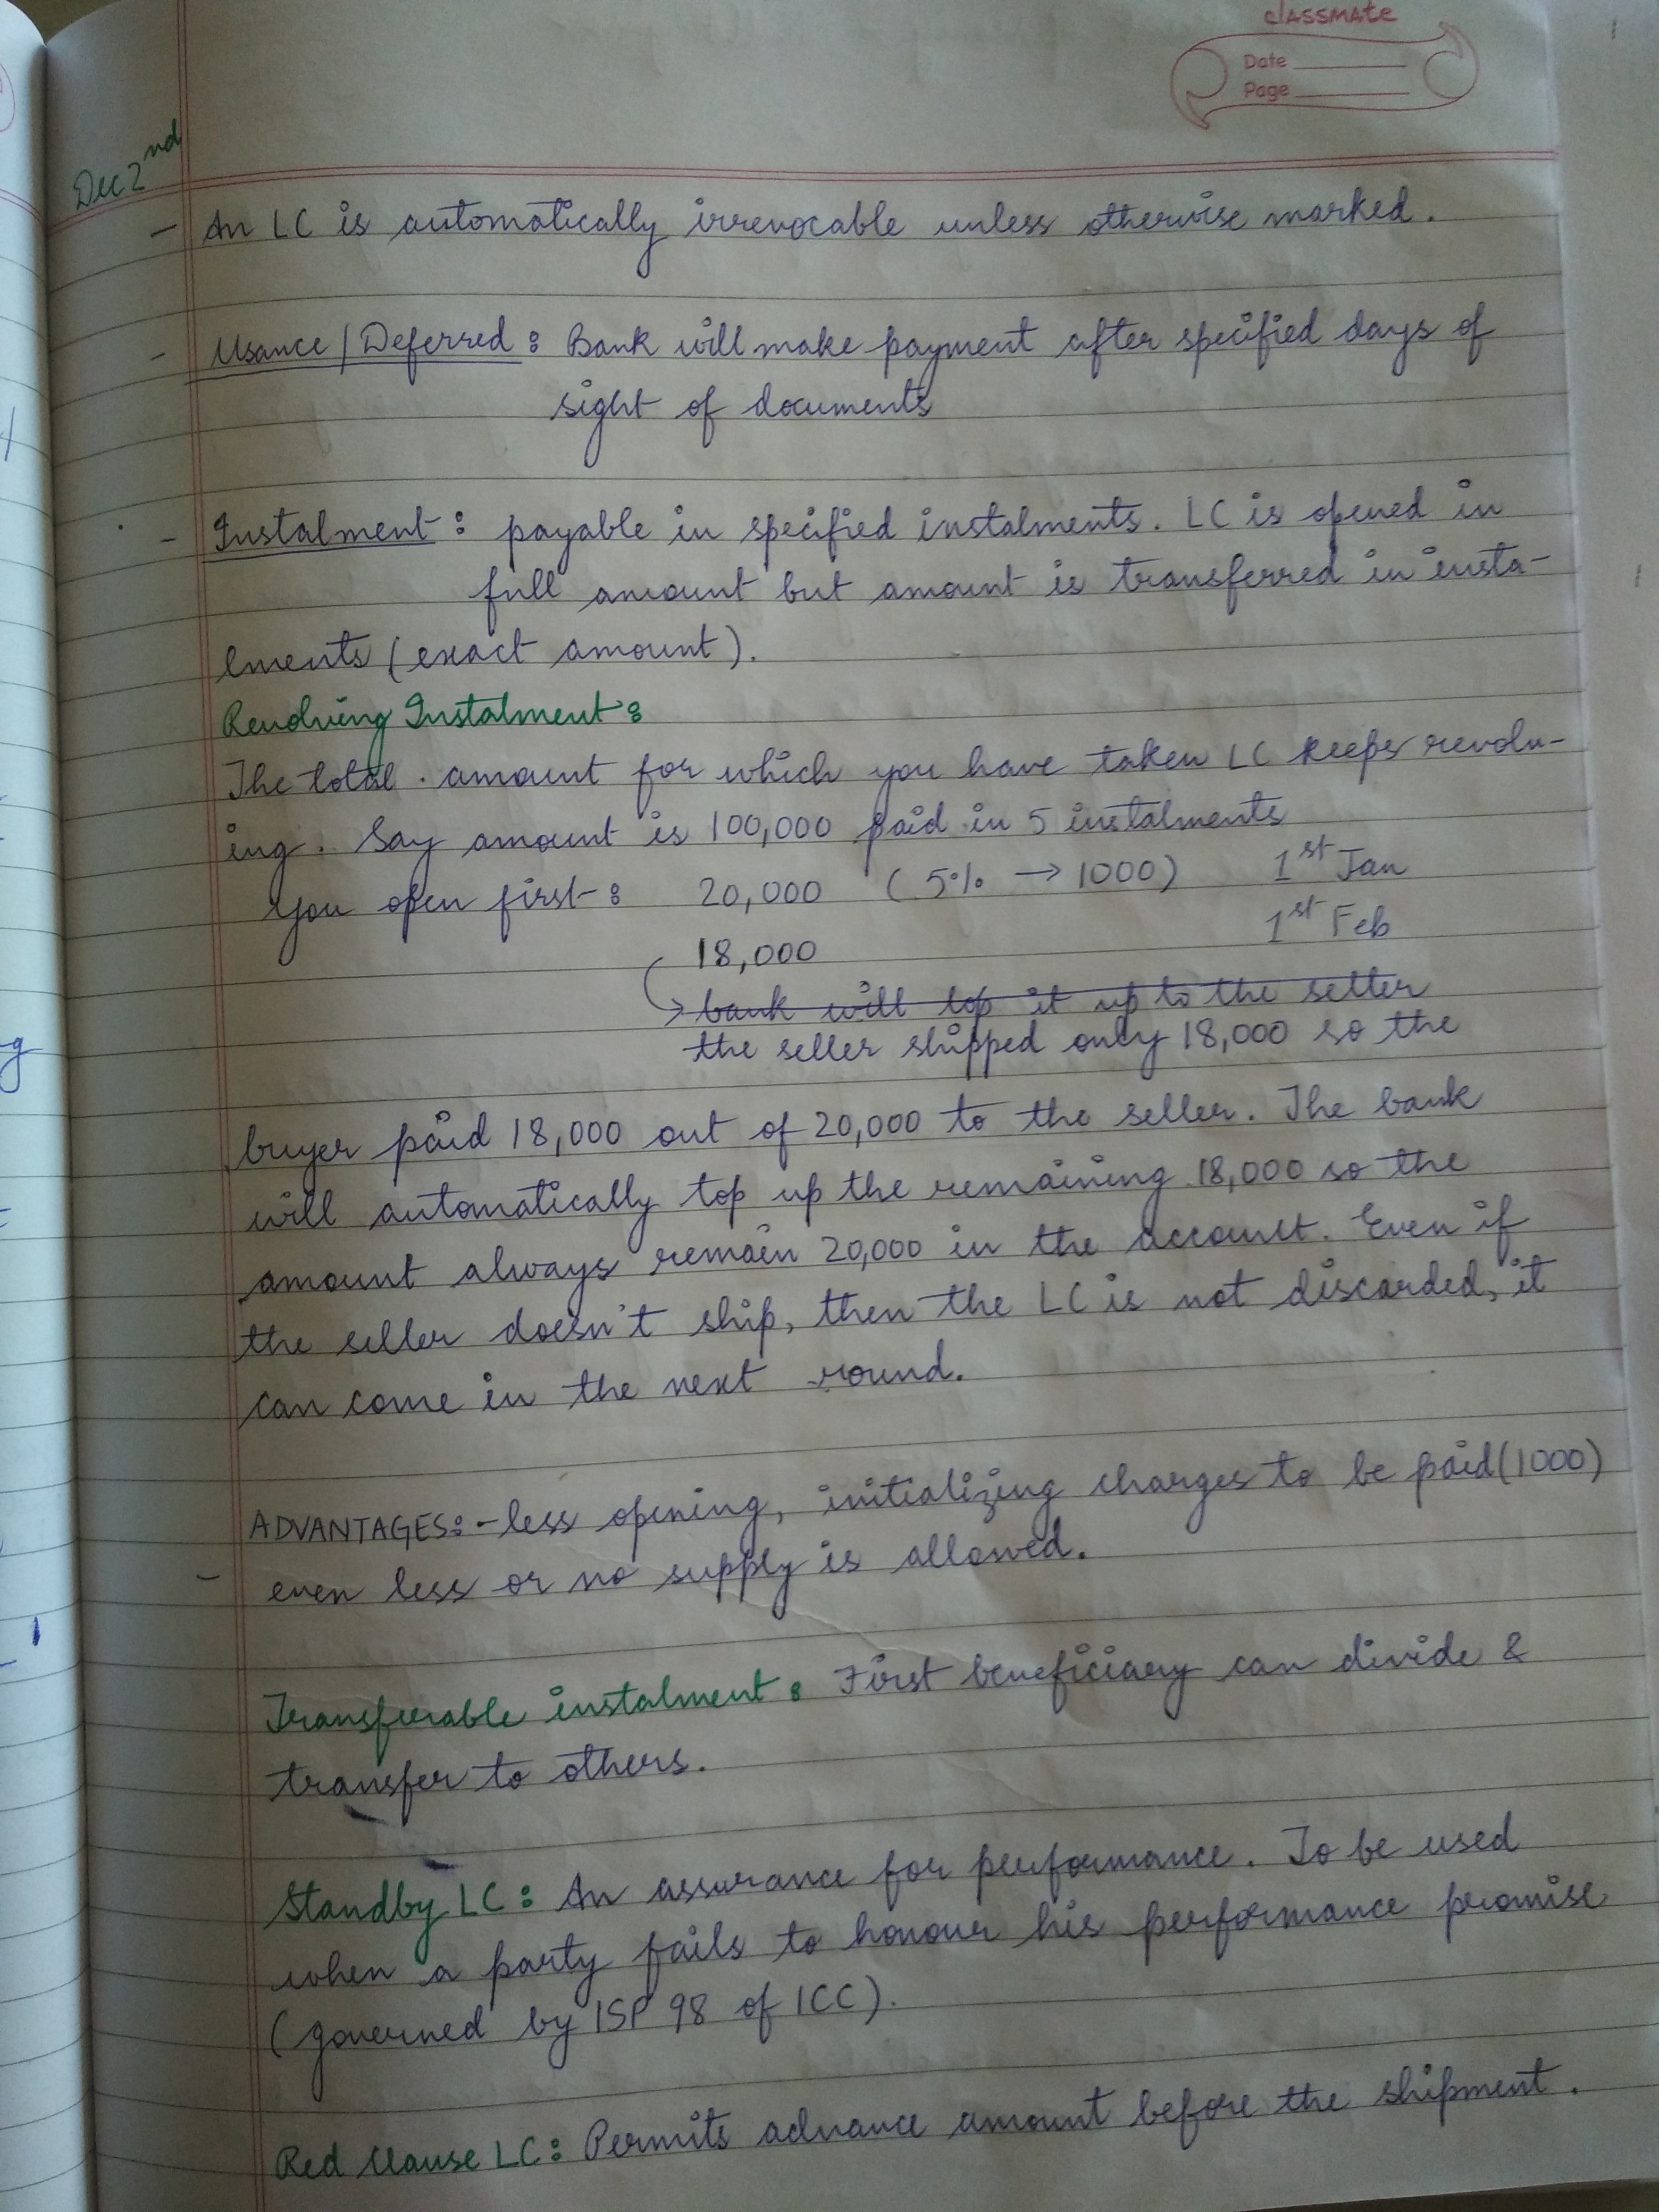 classmate
Date
Page
Dec 2nd
- An LC is automatically irrevocable unless otherwise marked.
- Usance / Deferred : Bank will make payment after specified days of
sight of documents
- Instalment : payable in specified instalments. LC is opened in
full amount but amount is transferred in insta-
lments (exact amount).
Revolving Instalment :
The total . amount for which you have taken LC keeps revolv-
ing. Say amount is 100,000 paid in 5 instalments
You open first : 20,000 (5% → 1000) 1st Jan
18,000 1st Feb
→ bank will top it up to the seller
the seller shipped only 18,000 so the
buyer paid 18,000 out of 20,000 to the seller. The bank
will automatically top up the remaining 18,000 so the
amount always remain 20,000 in the account. Even if
the seller doesn't ship, then the LC is not discarded, it
can come in the next round.
ADVANTAGES: - less opening, initializing charges to be paid (1000)
- even less or no supply is allowed.
Transferable instalment : First beneficiary can divide &
transfer to others.
Standby LC : An assurance for performance. To be used
when a party fails to honour his performance promise
(governed by ISP 98 of ICC).
Red Clause LC : Permits advance amount before the shipment.